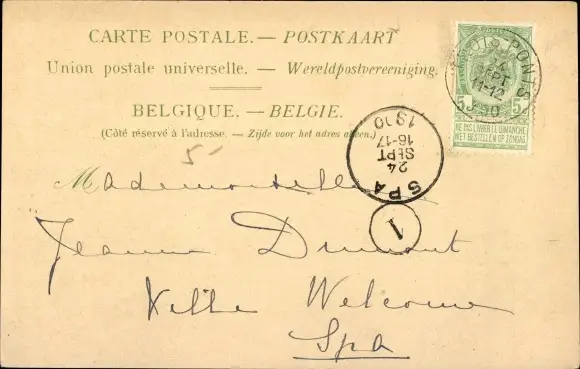 CARTE POSTALE. — POSTKAART
Union postale universelle. — Wereldpostvereeniging.
BELGIQUE. — BELGIE.
(Côté réservé à l'adresse. — Zijde voor het adres alleen.)
5-
PONTS
SEPT
11-12
5 5
NE PAS LIVRER LE DIMANCHE
NIET BESTELLEN OP ZONDAG
SPA
24
SEPT
16-17
1900
1
Mademoiselle
Jeanne Dumont
Ville Welcome
Spa